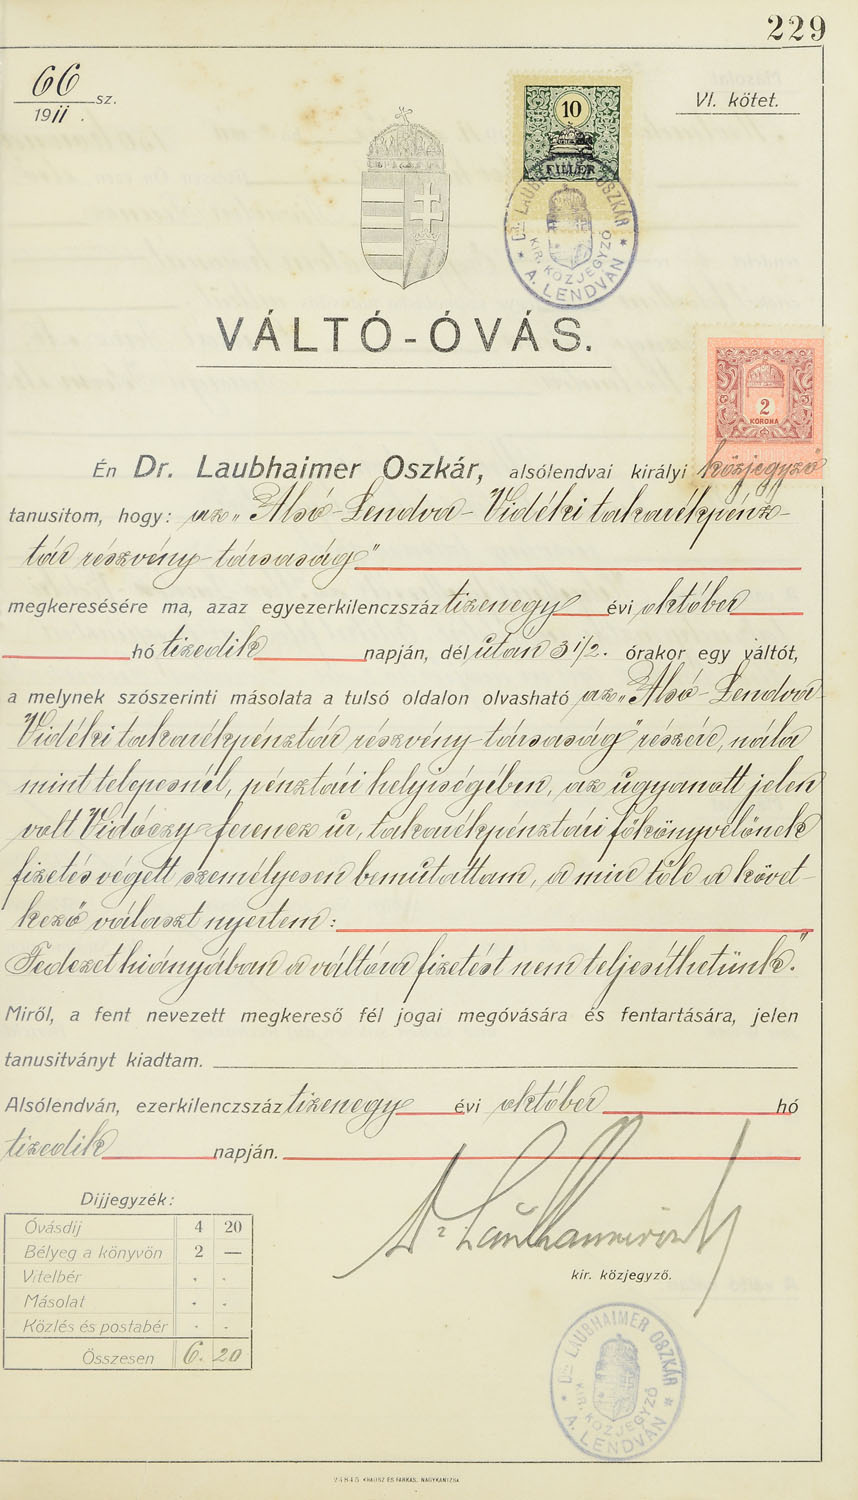 229
66
1911. sz.
VI. kötet.
10
FILLÉR
Dr. LAUBHAIMER OSZKÁR
KIR. KÖZJEGYZŐ
* A. LENDVÁN *
VÁLTÓ-ÓVÁS.
2
KORONA
Én Dr. Laubhaimer Oszkár, alsólendvai királyi közjegyző
tanusitom, hogy: az „Alsó-Lendva-Vidéki takarékpénz-
tár részvény-társaság"
megkeresésére ma, azaz egyezerkilenczszáz tizenegy évi október
hó tizedik napján, dél után 3 1/2. órakor egy váltót,
a melynek szószerinti másolata a tulsó oldalon olvasható az „Alsó-Lendva
Vidéki takarékpénztár részvény-társaság" részére, nála
mint telepesnél, pénztári helyiségében, az ugyanott jelen
volt Vidóczy Ferencz úr, takarékpénztári főkönyvelőnek
fizetés végett személyesen bemutattam, a mire tőle a követ-
kező választ nyertem:
Fedezet hiányában a váltóra fizetést nem teljesíthetünk."
Miről, a fent nevezett megkereső fél jogai megóvására és fentartására, jelen
tanusitványt kiadtam.
Alsólendván, ezerkilenczszáz tizenegy évi október hó
tizedik napján.
Dijjegyzék:
Óvásdij 4 20
Bélyeg a könyvön 2 —
Vitelbér . .
Másolat . .
Közlés és postabér . .
Összesen 6. 20
Dr Laubhaimer Oszkár
kir. közjegyző.
Dr. LAUBHAIMER OSZKÁR
KIR. KÖZJEGYZŐ
* A. LENDVÁN *
24845 KRAUSZ ÉS FARKAS, NAGYKANIZSA